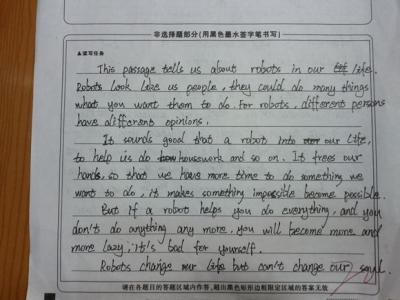 非选择题部分(用黑色墨水签字笔书写)
▲读写任务
This passage tells us about robots in our life.
Robots look like us people, they could do many things
what you want them to do. For robots, different persons
have different opinions.
It sounds good that a robot into our life,
to help us do housework and so on. It frees our
hands, so that we have more time to do something we
want to do, it makes something impossible become possible.
But if a robot helps you do everything, and you
don't do anything any more, you will become more and
more lazy, it's bad for yourself.
Robots change our life but can't change our soul.
请在各题目的答题区域内作答,超出黑色矩形边框限定区域的答案无效